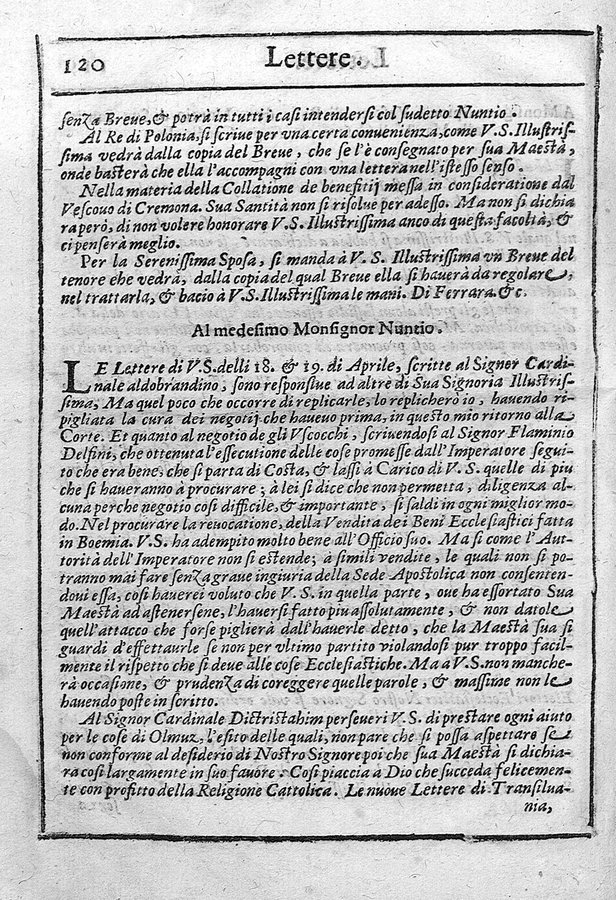 120
Lettere. I
senza Breue, & potrà in tutti i casi intendersi col sudetto Nuntio.
Al Re di Polonia, si scriue per vna certa conuenienza, come V. S. Illustris-
sima vedrà dalla copia del Breue, che se l'è consegnato per sua Maestà,
onde basterà che ella l'accompagni con vna lettera nell'istesso senso.
Nella materia della Collatione de benefitij messa in consideratione dal
Vescouo di Cremona. Sua Santità non si risolue per adesso. Ma non si dichia
ra però, di non volere honorare V. S. Illustrissima anco di questa facoltà, &
ci penserà meglio.
Per la Serenissima Sposa, si manda à V. S. Illustrissima vn Breue del
tenore che vedrà, dalla copia del qual Breue ella si hauerà da regolare,
nel trattarla, & bacio à V. S. Illustrissima le mani. Di Ferrara &c.
Al medesimo Monsignor Nuntio.
LE Lettere di V. S. delli 18. & 19. di Aprile, scritte al Signor Cardi-
nale aldobrandino, sono responsiue ad altre di Sua Signoria Illustris-
sima, Ma quel poco che occorre di replicarle, lo replicherò io, hauendo ri-
pigliata la cura dei negotij che haueuo prima, in questo mio ritorno alla
Corte. Et quanto al negotio de gli Vscocchi, scriuendosi al Signor Flaminio
Delfini, che ottenuta l'essecutione delle cose promesse dall'Imperatore segui-
to che era bene, che si parta di Costa, & lassi à Carico di V. S. quelle di piu
che si haueranno à procurare; à lei si dice che non permetta, diligenza al-
cuna perche negotio cosi difficile, & importante, si saldi in ogni miglior mo-
do. Nel procurare la reuocatione, della Vendita dei Beni Ecclesiastici fatta
in Boemia. V. S. ha adempito molto bene all'Officio suo. Ma si come l'Aut-
torità dell'Imperatore non si estende; à simili vendite, le quali non si po-
tranno mai fare senza graue ingiuria della Sede Apostolica non consenten-
doui essa, cosi hauerei voluto che V. S. in quella parte, oue ha essortato Sua
Maestà ad astenersene, l'hauersi fatto piu assolutamente, & non datole
quell'attacco che forse piglierà dall'hauerle detto, che la Maestà sua si
guardi d'effettaurle se non per vltimo partito violandosi pur troppo facil-
mente il rispetto che si deue alle cose Ecclesiastiche. Ma a V. S. non manche-
rà occasione, & prudenza di coreggere quelle parole, & massime non le
hauendo poste in scritto.
Al Signor Cardinale Dictristahim perseueri V. S. di prestare ogni aiuto
per le cose di Olmuz, l'esito delle quali, non pare che si possa aspettare se
non conforme al desiderio di Nostro Signore poi che sua Maestà si dichia-
ra cosi largamente in suo fauore. Cosi piaccia à Dio che succeda felicemen-
te con profitto della Religione Cattolica. Le nuoue Lettere di Transilua-
nia,